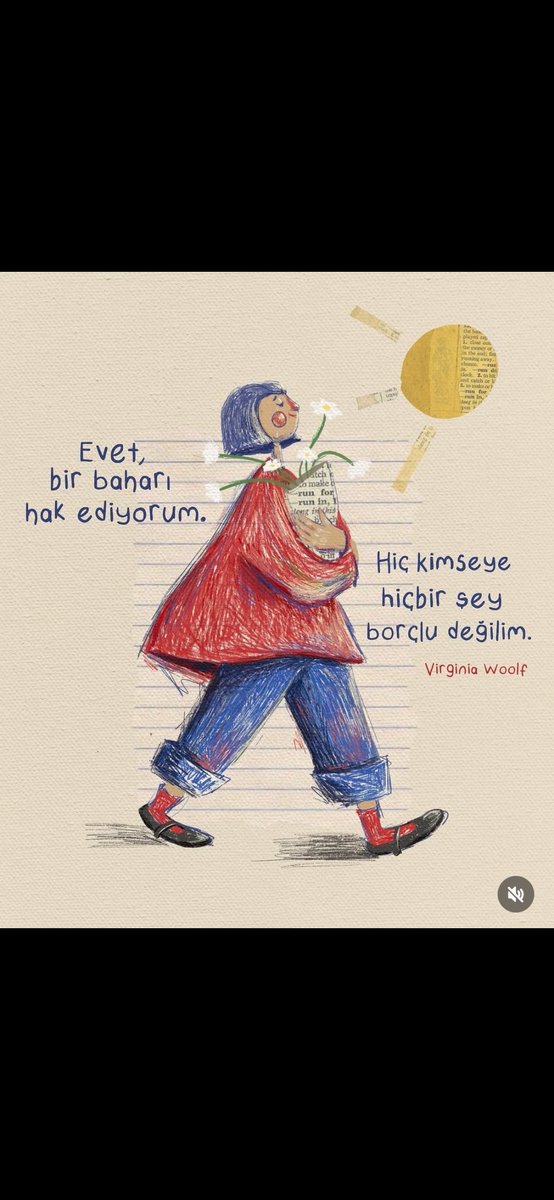 Evet,
bir baharı
hak ediyorum.
Hiç kimseye
hiçbir şey
borçlu değilim.
Virginia Woolf
run for
run in,